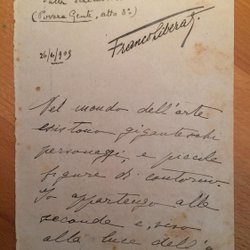 (Povera Gente, atto 3º)
26/6/909
Franco Liberati
Nel mondo dell'arte
esistono giganteschi
personaggi, e piccole
figure di contorno.
Io appartengo alle
seconde e, vivo
alla luce dell'